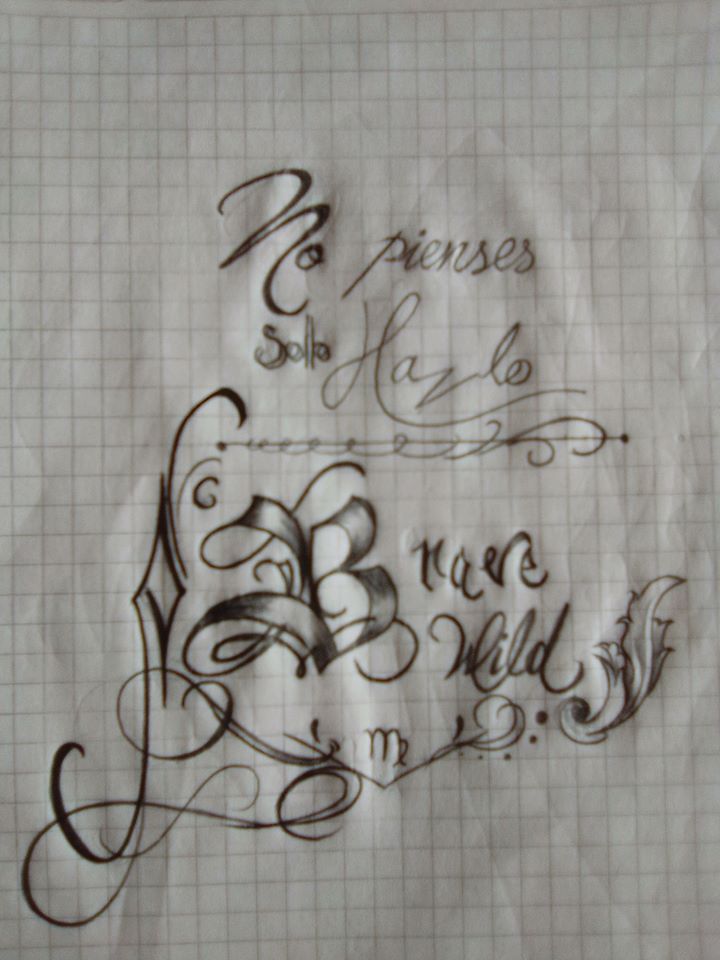 No pienses
Sollo Hazlo
Brave
Wild